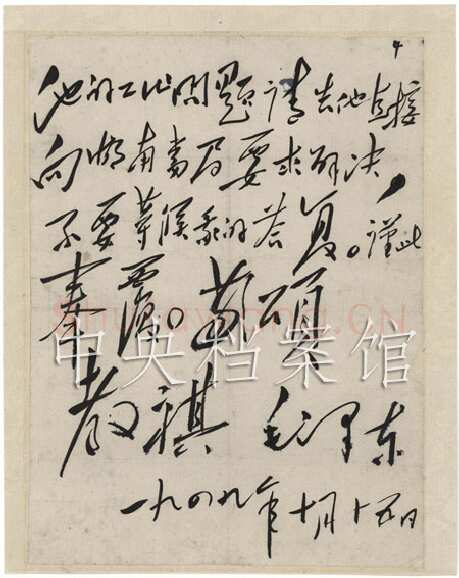 4
他的工作問題請告他直接
向湖南當局要求解决，
不要等候我的答复。謹此
奉覆。敬頌
中央档案馆
教祺 毛泽东
一九四九年十月十五日